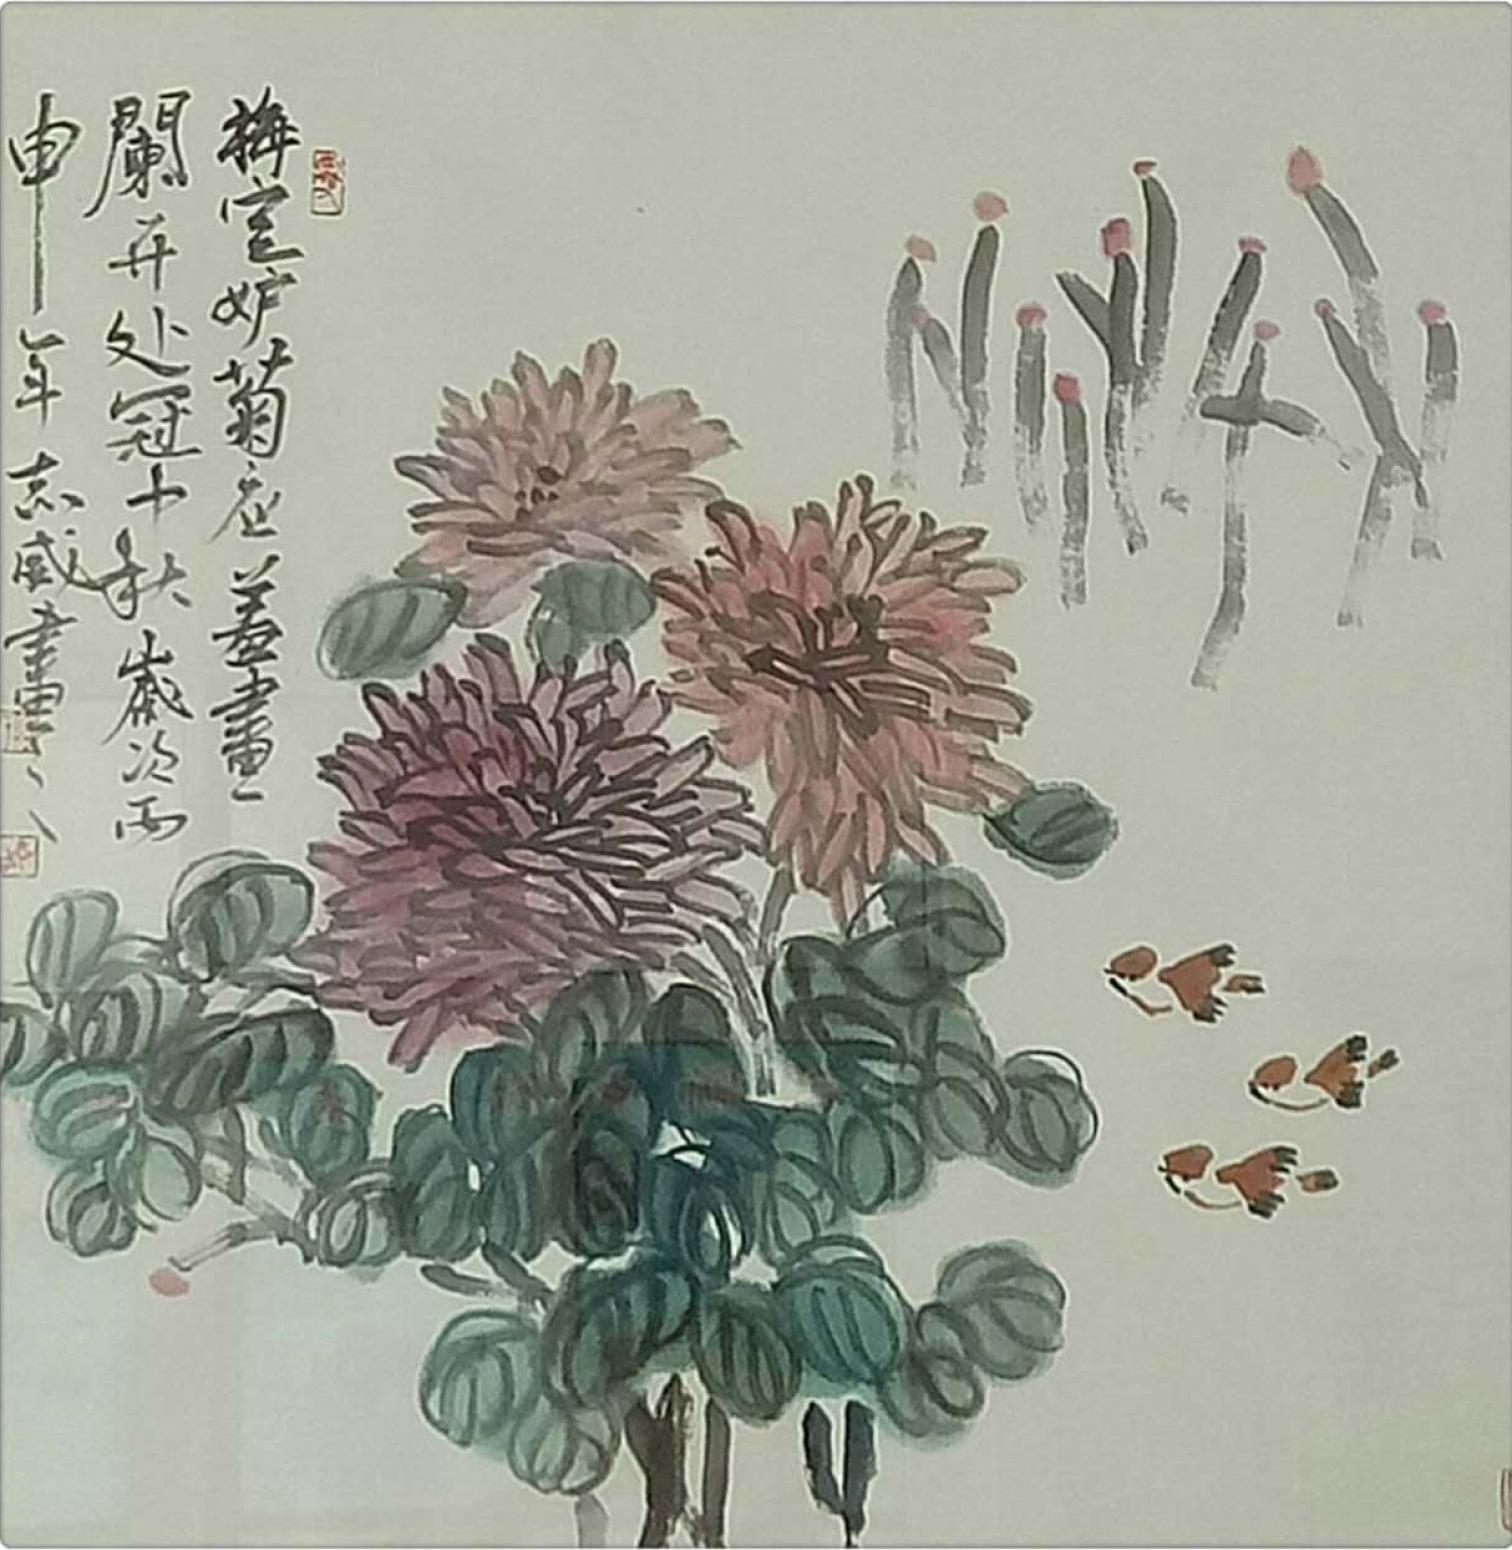 梅定妒菊应羞畫
闌开处冠中秋歲次丙
申年志威畫